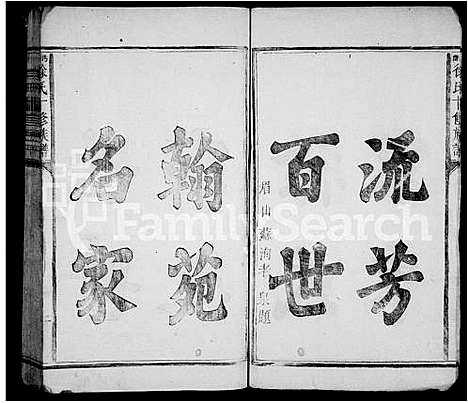 流芳
百世
眉山蘇洵老泉題
翰苑
名家
徐氏十修族譜
徐氏十修族譜
FamilySearch